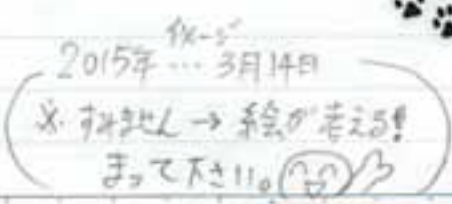 イメージ
2015年 … 3月14日
※ すみません → 絵が考える!
まって下さい。